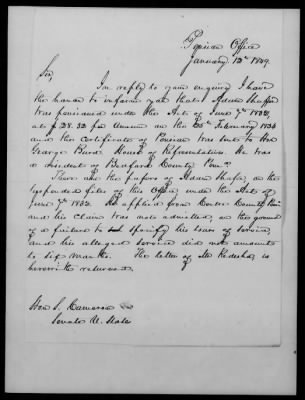 Pension Office
January 12th 1849.
Sir,
In reply to your enquiry I have
the honor to inform you that Adam Shaffer
was pensioned under the Act of June 7th 1832,
at $28.32 per Annum on the 25th February 1834
and the Certificate of Pension was sent to Hon
George Burd House of Representatives. He was
a resident of Bedford County Penna
There are the papers of Adam Shafer, in the
suspended files of this Office, under the Act of
June 7th 1832. He applied from Centre County
and his Claim was not admitted, on the ground
of a failure to specify his tours of service,
and his alleged service did not amount
to six months. The letter of Mr
herewith returned.
Hon S. Cameron
Senate U. State